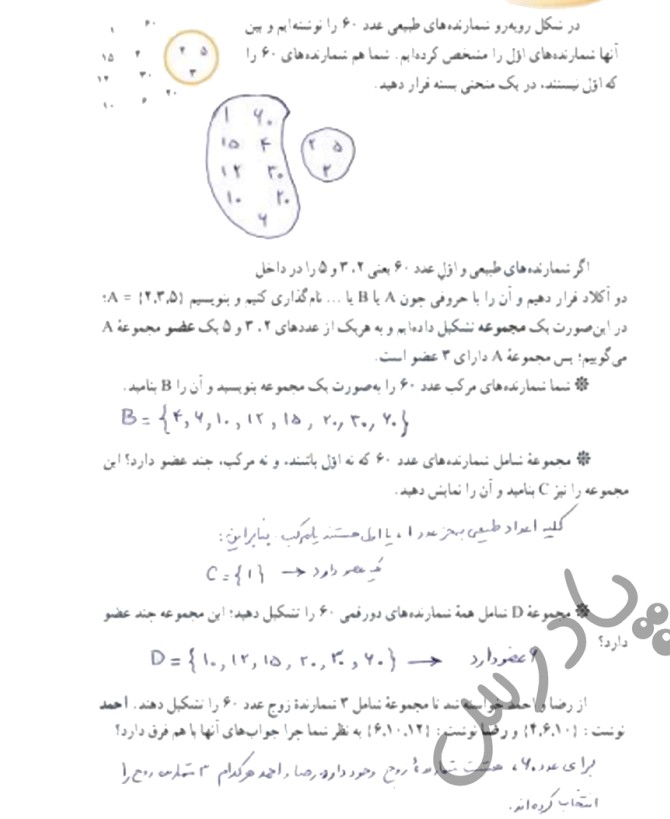 در شکل روبه‌رو شمارنده‌های طبیعی عدد ۶۰ را نوشته‌ایم و بین
آنها شمارنده‌های اوّل را مشخص کرده‌ایم. شما هم شمارنده‌های ۶۰ را
که اوّل نیستند، در یک منحنی بسته قرار دهید.
۱ ۶۰
۱۵ ۴ ۲ ۵
۳
۱۲ ۳۰
۲۰
۱۰ ۶
۱ ۶۰
۱۵ ۴ ۲ ۵
۱۲ ۳۰ ۳
۱۰ ۲۰
۶
اگر شمارنده‌های طبیعی و اوّل عدد ۶۰ یعنی ۲، ۳ و ۵ را در داخل
دو آکلاد قرار دهیم و آن را با حروفی چون A یا B یا ... نام‌گذاری کنیم و بنویسیم A = {۲,۳,۵}؛
در این‌صورت یک مجموعه تشکیل داده‌ایم و به هریک از عددهای ۲، ۳ و ۵ یک عضو مجموعهٔ A
می‌گوییم؛ پس مجموعهٔ A دارای ۳ عضو است.
شما شمارنده‌های مرکب عدد ۶۰ را به‌صورت یک مجموعه بنویسید و آن را B بنامید.
B = {۴, ۶, ۱۰, ۱۲, ۱۵, ۲۰, ۳۰, ۶۰}
مجموعهٔ شامل شمارنده‌های عدد ۶۰ که نه اوّل باشند، و نه مرکب، چند عضو دارد؟ این
مجموعه را نیز C بنامید و آن را نمایش دهید.
کلیه اعداد طبیعی بجز عدد ۱، یا اول هستند یا مرکب. بنابراین:
C = {۱} → یک عضو دارد
مجموعهٔ D شامل همهٔ شمارنده‌های دورقمی ۶۰ را تشکیل دهید؛ این مجموعه چند عضو
دارد؟
D = {۱۰, ۱۲, ۱۵, ۲۰, ۳۰, ۶۰} → ۶ عضو دارد
از رضا و احمد خواسته شد تا مجموعهٔ شامل ۳ شمارندهٔ زوج عدد ۶۰ را تشکیل دهند. احمد
نوشت: {۴,۶,۱۰} و رضا نوشت: {۶,۱۰,۱۲} به نظر شما چرا جواب‌های آنها با هم فرق دارد؟
برای عدد ۶۰، هشت شمارندهٔ زوج وجود دارد. رضا و احمد هرکدام ۳ شمارنده زوج را
انتخاب کرده‌اند.
پادرس